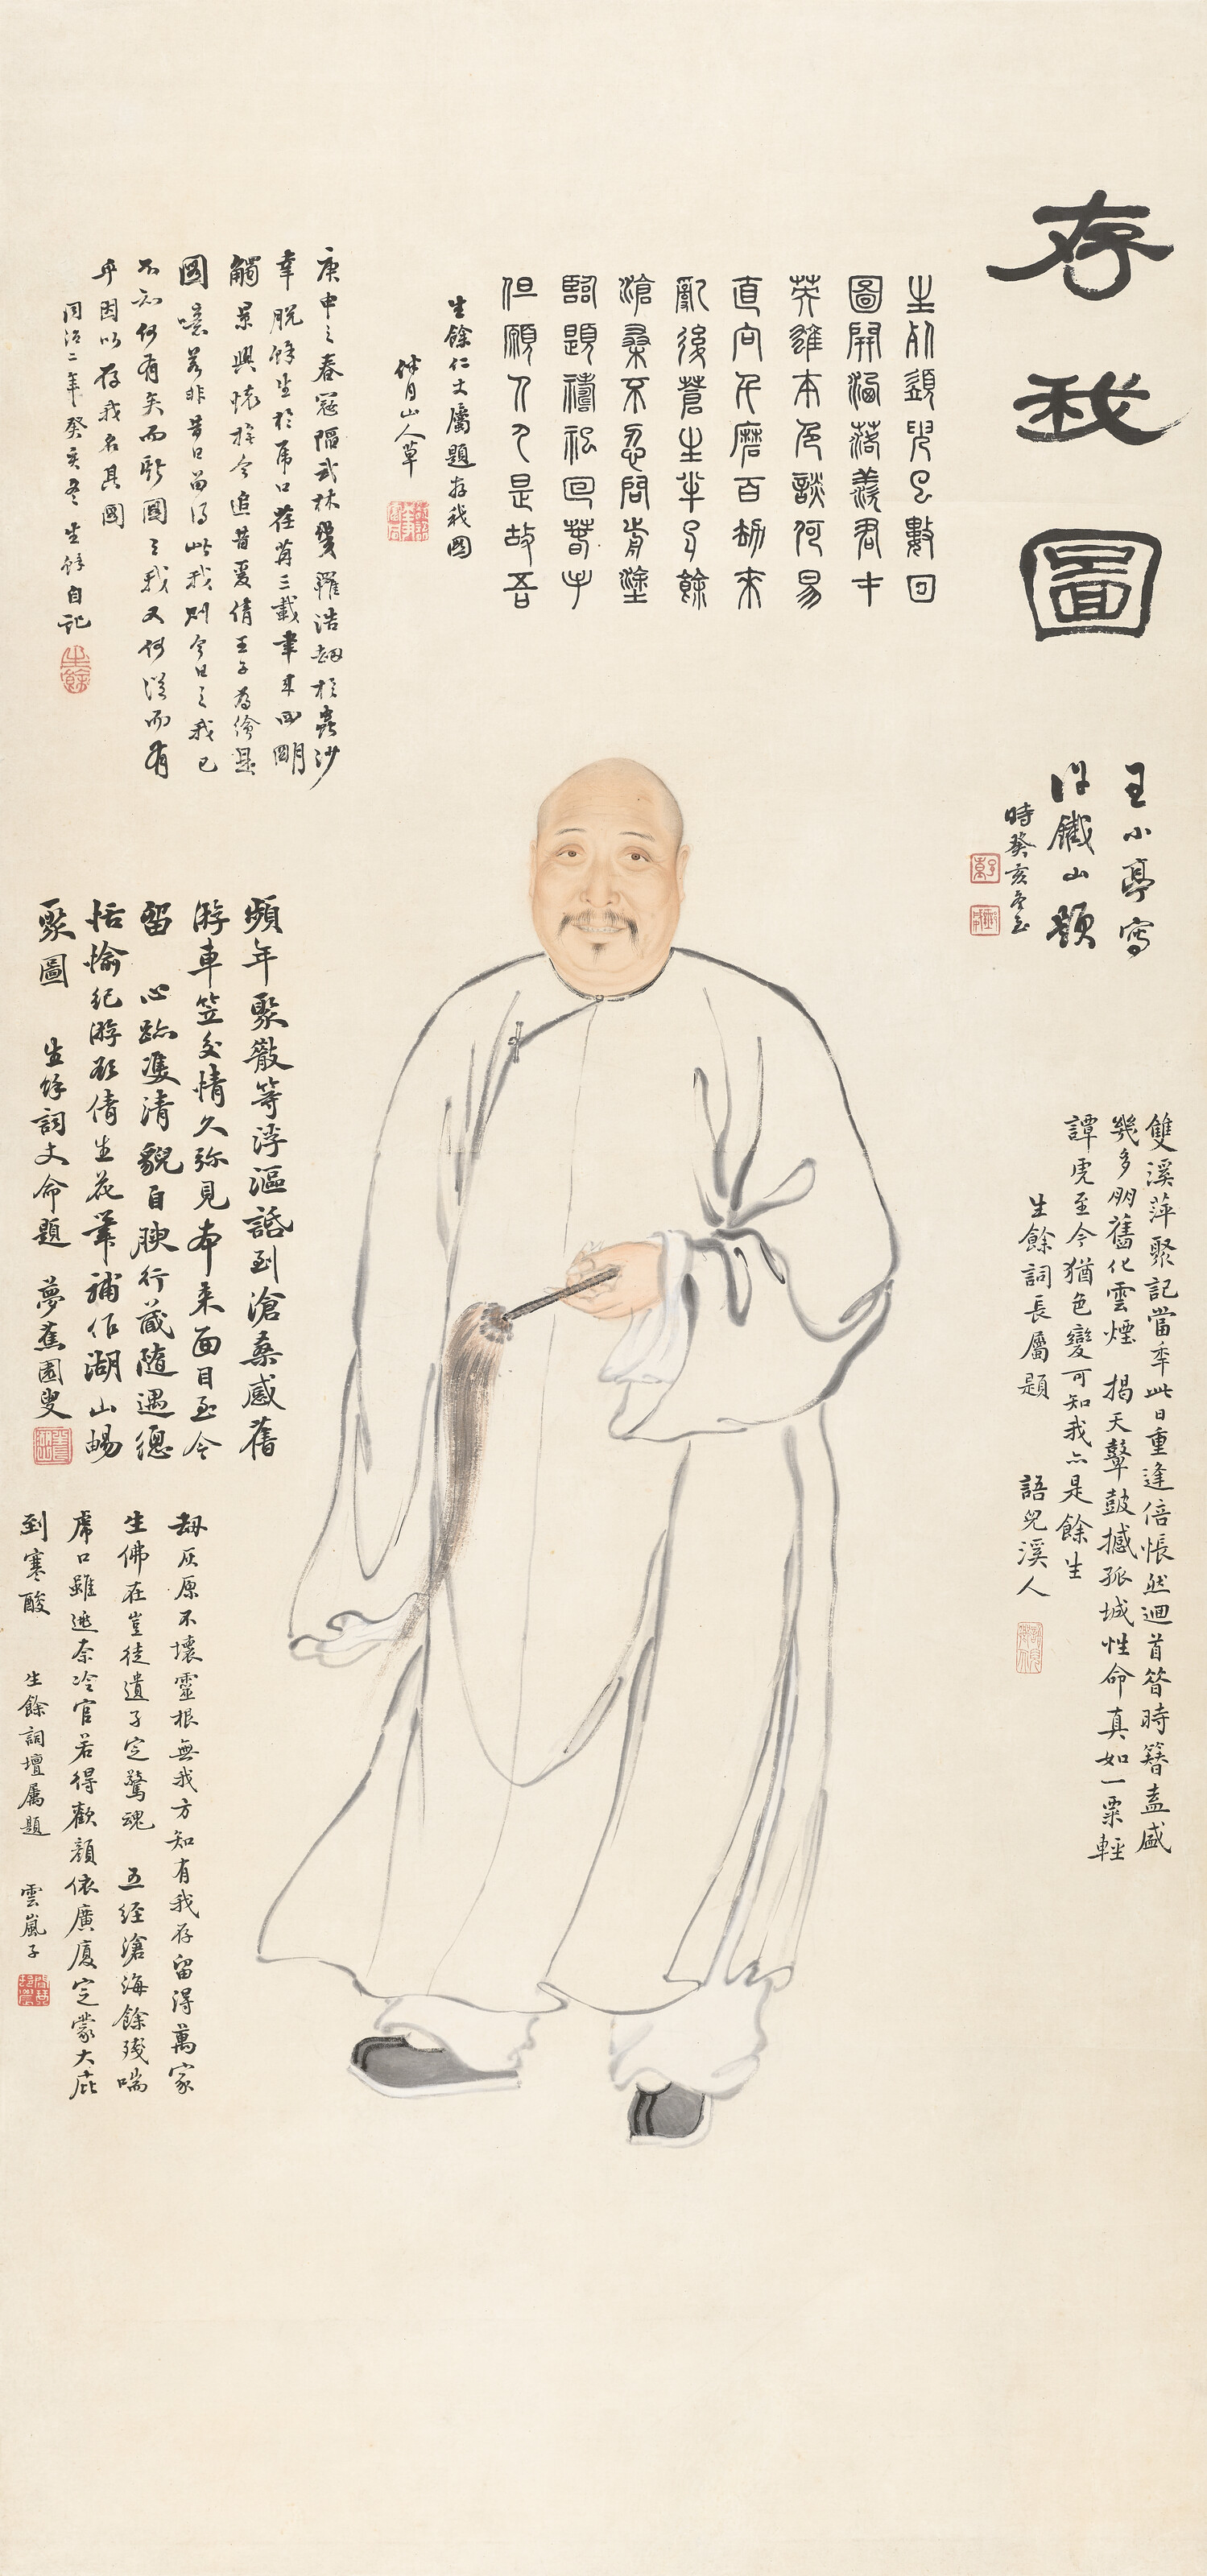 存我圖
王小亭寫
許鐵山題
時癸亥冬至
生別頭顱已數回
圖開濩落羨君才
英雄本色談何易
直向凡磨百劫來
亂後蒼生半身餘
滄桑不忍問前塗
臨題禱祝回春手
但願人人是故吾
生餘仁丈屬題存我圖
伴月山人草
庚申之春寇陷武林雙羅浩劫於蟲沙
幸脫餘生於虎口荏苒三載聿來四明
觸景興懷撫今追昔爰倩王子為繪是
圖噫若非昔日留得此我則今日之我已
不知何有矣而斯圖之我又何從而有
乎因以存我名其圖
同治二年癸亥冬生餘自記
雙溪萍聚記當年此日重逢倍悵然迴首昝時簪盍盛
幾多朋舊化雲煙 揭天鼙鼓撼孤城性命真如一粟輕
譚虎至今猶色變可知我亦是餘生
生餘詞長屬題 語兒溪人
頻年聚散等浮漚話到滄桑感舊
游車笠交情久弥見本来面目至今
留 心跡雙清貌自腴行藏隨遇總
恬愉紀游欲倩生花筆補作湖山暢
聚圖 生餘詞丈命題 夢蕉園叟
劫灰原不壞靈根無我方知有我存留得萬家
生佛在豈徒遺子定驚魂 五經滄海餘殘喘
虎口雖逃奈冷官若得歡顏依廣廈定蒙大庇
到寒酸 生餘詞壇屬題 雲嵐子